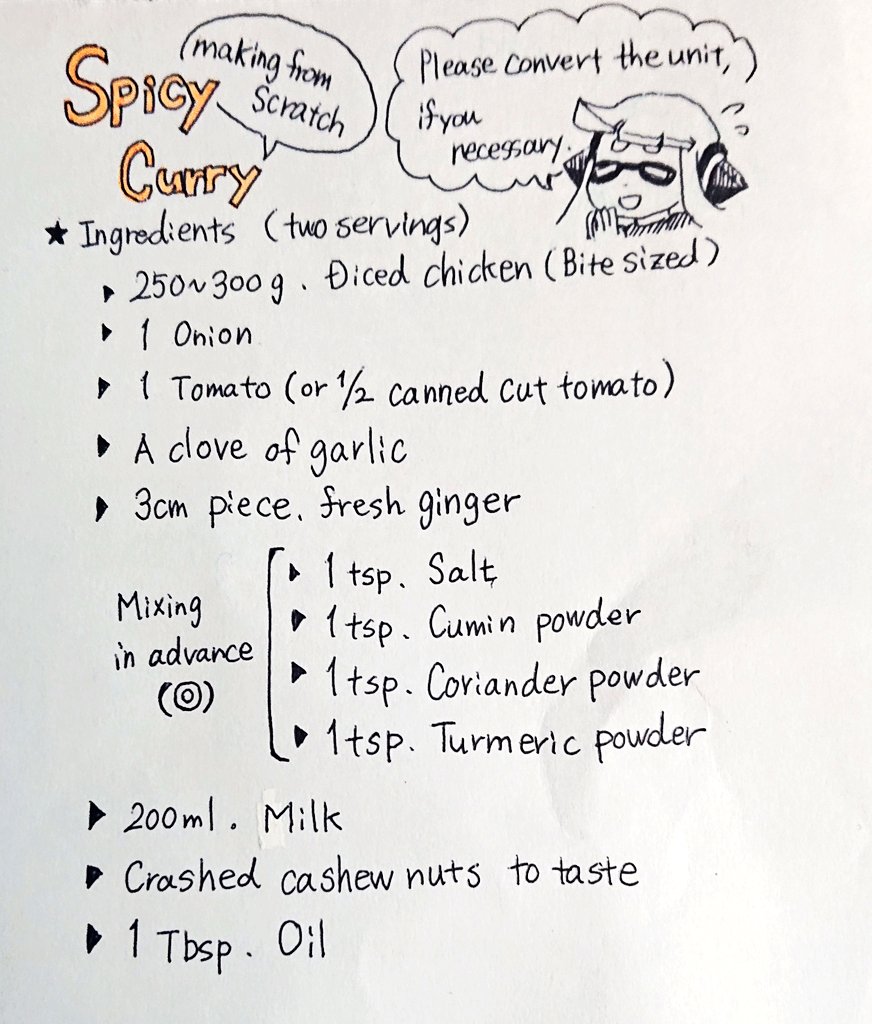 Spicy
Curry
making from
Scratch
Please convert the unit,
if you
necessary.
★ Ingredients (two servings)
▶ 250~300g. Diced chicken (Bite sized)
▶ 1 Onion
▶ 1 Tomato (or 1/2 canned cut tomato)
▶ A clove of garlic
▶ 3cm piece. fresh ginger
Mixing
in advance
(◎)
▶ 1 tsp. Salt
▶ 1 tsp. Cumin powder
▶ 1 tsp. Coriander powder
▶ 1 tsp. Turmeric powder
▶ 200ml. Milk
▶ Crashed cashew nuts to taste
▶ 1 Tbsp. Oil